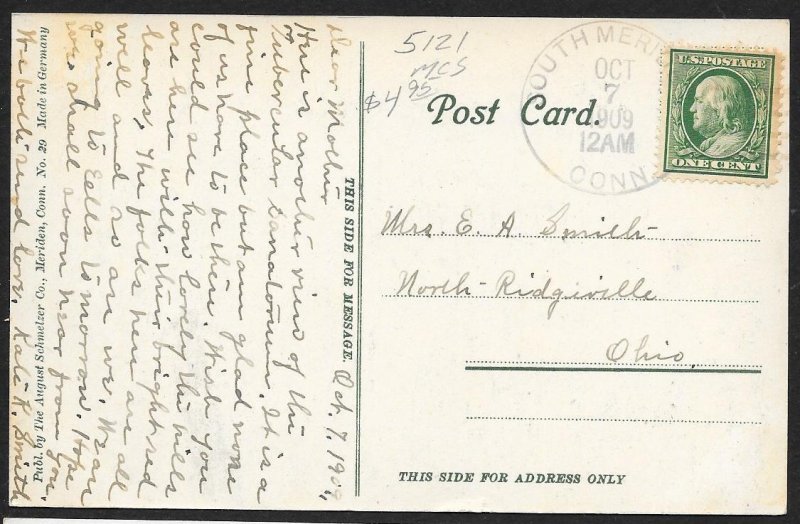 5121
MCS
$4.95
Post Card.
SOUTH MERI
OCT
7
1909
12AM
CONN.
U.S. POSTAGE
ONE CENT
Mrs. E. A. Smith
North Ridgeville
Ohio,
THIS SIDE FOR ADDRESS ONLY
THIS SIDE FOR MESSAGE.
Oct. 7, 1909,
Dear Mother
Here is another view of the
Tubercular Sanatorium. It is a
fine place but am glad none
of us have to be there. Wish you
could see how lovely the hills
are here with their bright red
leaves. The folks here are all
well and so are we. We are
going to Eells to-morrow. Hope
we shall soon hear from you
We both send love. Kali K. Smith
Publ. by The August Schmelzer Co., Meriden, Conn. No. 29 Made in Germany